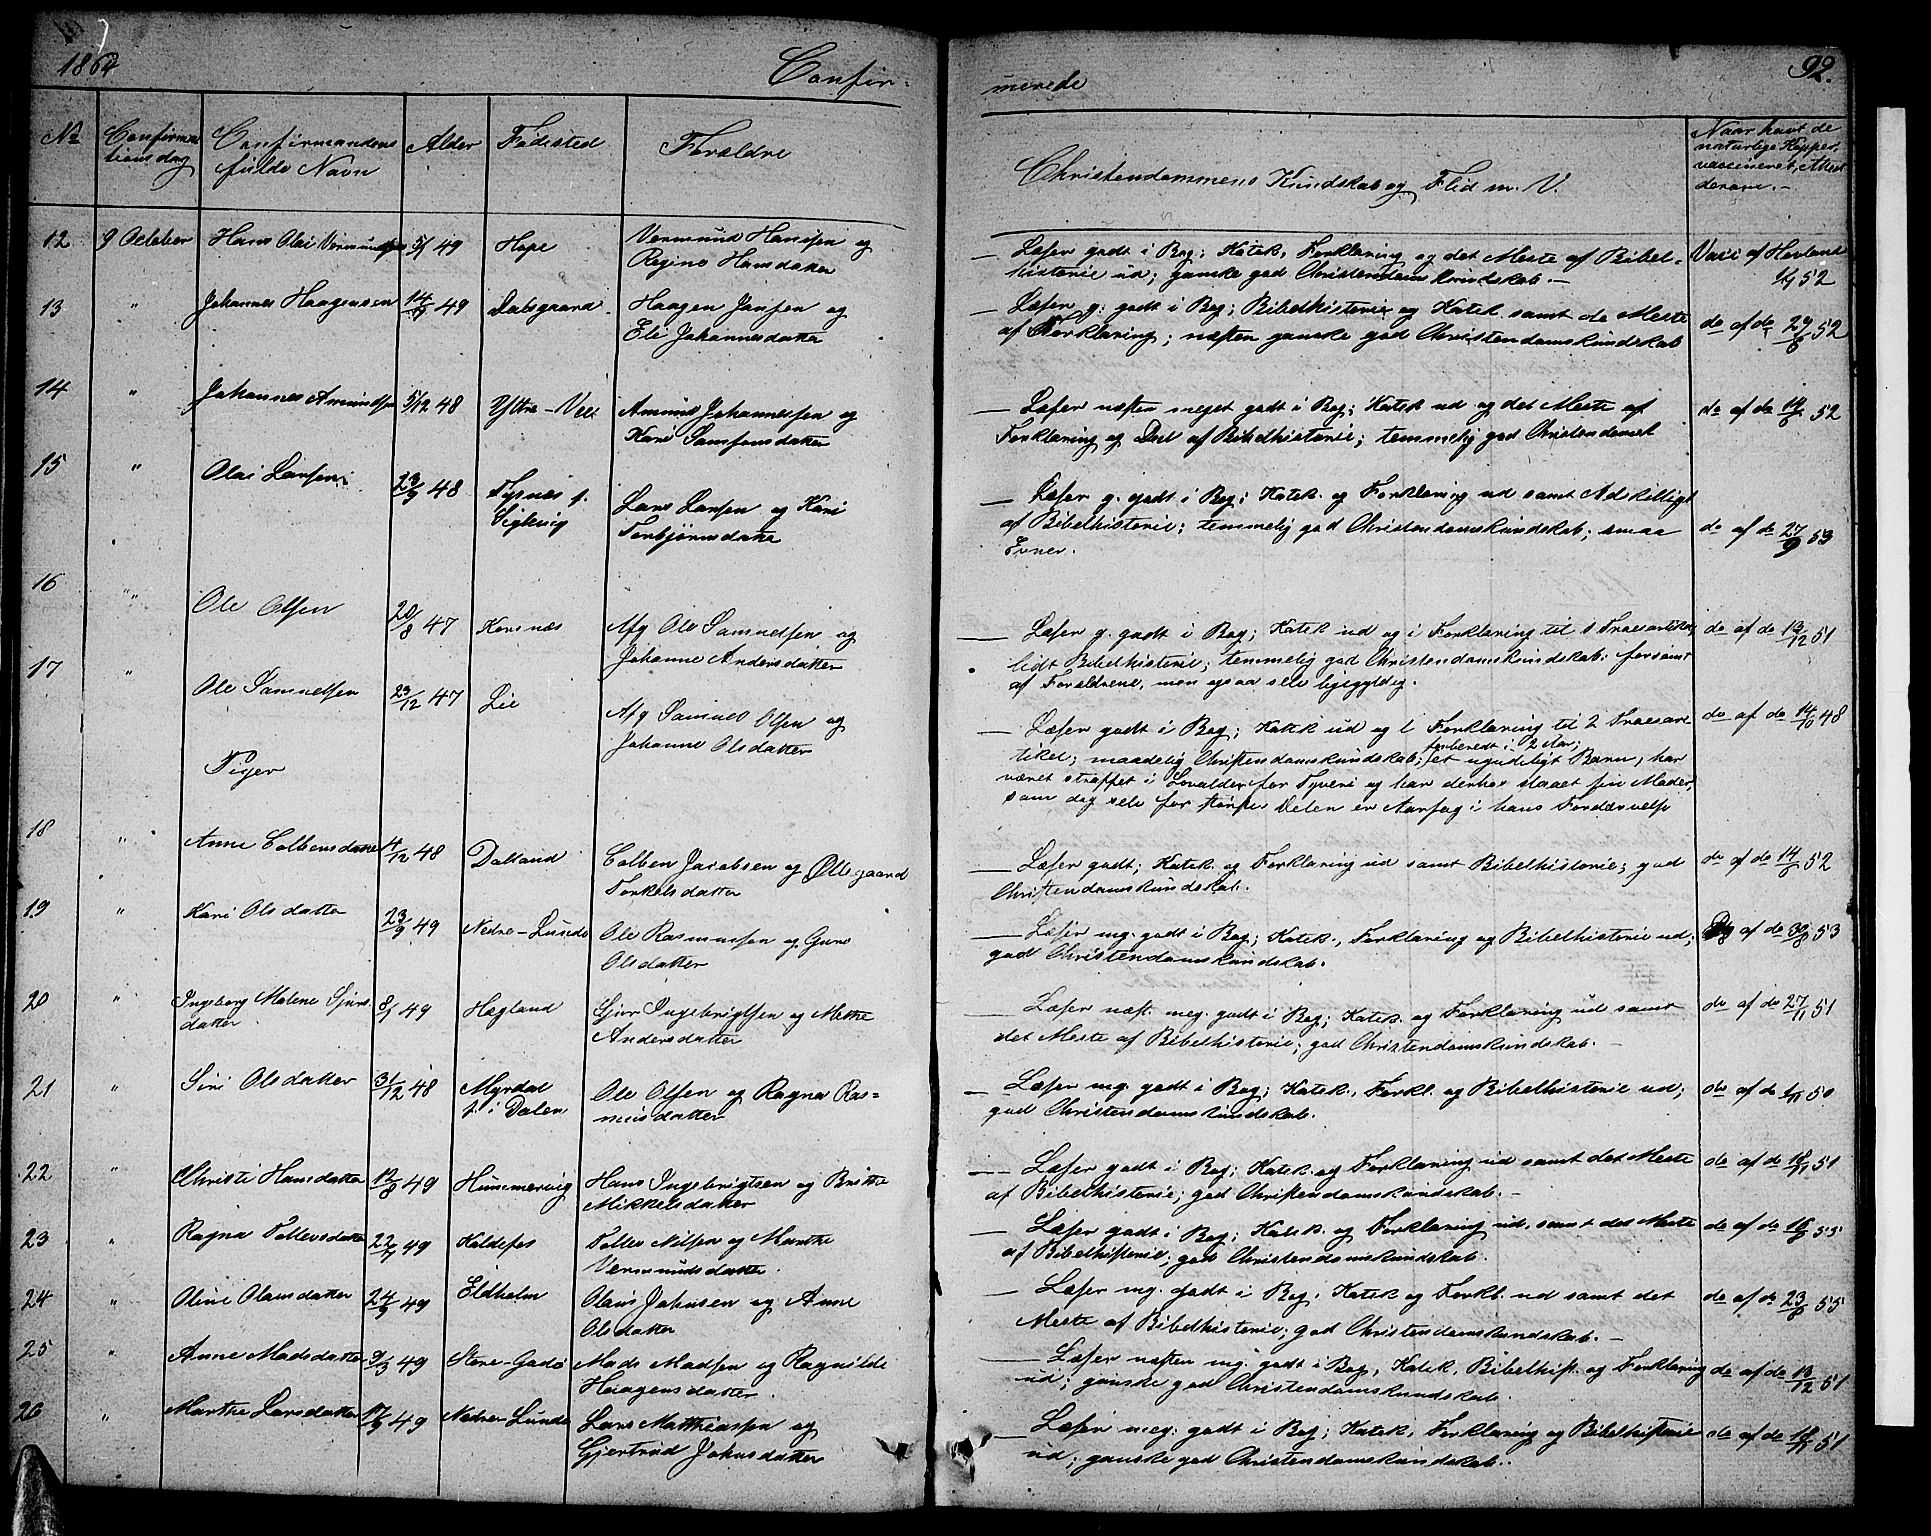 1864
Confir-
merede
92.
No
Confirma-
tionsdag
Confirmandens
fulde Navn
Alder
Fødested
Forældre
Christendommens Kundskab og Flid m. V.
Naar havt de
naturlige Kopper,
vaccineret, Attest
derom.-
12 9 October Hans Olai Vermundsen 5/1 49 Hope Vermund Hansen og
Regine Hansdatter
Læser godt i Bog; Katek, Forklaring og det Meste af Bibel-
historie ud; ganske god Christendoms Kundskab.-
Vacc af Hovland
52
13 " Johannes Haagensen 49 Dalsgaard Haagen Jansen og
Eli Johannesdatter
Læser g. godt i Bog; Bibelhistorie og Katek. samt de Meste
af Forklaring; næsten ganske god Christendomskundskab
do af do 52
14 " Johannes Amundsen 5/12 48 Yttre-Vest Amund Johannessen og
Kari Samsonsdatter
Læser næsten meget godt i Bog; Katek ud og det Meste af
Forklaring og Deel af Bibelhistorie; temmelig god Christendomsk
do af do 52
15 " Olai Larsen 23/9 48 Tysnes f.
Sigkvig
Lars Larsen og Kari
Torbjørnsdatter
Læser g. godt i Bog; Katek. og Forklaring ud samt Adskilligt
af Bibelhistorie; temmelig god Christendomskundskab; smaa
Evner.
do af do 27/9 53
16 " Ole Olsen 20/8 47 Korsnæs Afg Ole Samuelsen og
Johanne Andersdatter
Læser g. godt i Bog; Katek ud og i Forklaring til 1 Troesartikel,
lidt Bibelhistorie; temmelig god Christendomskundskab; forsømt
af Forældrene, men ogsaa selv ligegyldig.
do af do 13/12 51
17 " Ole Samuelsen 23/12 47 Lie Afg Samuel Olsen og
Johanne Olsdatter
Læser godt i Bog; Katek ud og i Forklaring til 2 Troesar-
tikel; maadelig Christendomskundskab; forberedt i 2 Aar; et ugudeligt Barn, har
været straffet i Lovalder for Tyveri og har derhos slaaet sin Moder,
som dog selv for største Delen er Aarsag i hans Fordærvelse
do af do 48
Piger
18 " Anne Colbensdatter 4/12 48 Dalland Colben Jacobsen og Øllegaard
Torkelsdatter
Læser godt; Katek. og Forklaring ud samt Bibelhistorie; god
Christendomskundskab.
do af do 52
19 " Kari Olsdatter 23/9 49 Nedre-Lunde Ole Rasmussen og Guro
Olsdatter
Læser mg. godt i Bog; Katek., Forklaring og Bibelhistorie ud;
god Christendomskundskab.
af do 30/8 53
20 " Ingeborg Malene Sjurs-
datter
8/1 49 Hagland Sjur Ingebrigtsen og Mette
Andersdatter
Læser næst. meg. godt i Bog; Katek. og Forklaring ud samt
det Meste af Bibelhistorie; god Christendomskundskab.-
do af do 27/11 51
21 " Siri Olsdatter 31/12 48 Myrdal
f. i Dalen
Ole Olsen og Ragna Ras-
musdatter
Læser mg. godt i Bog; Katek., Forkl. og Bibelhistorie ud;
god Christendomskundskab.
do af do 50
22 " Christi Hansdatter 12/8 49 Hummervig Hans Ingebrigtsen og Brithe
Mikkelsdatter
Læser godt i Bog; Katek. og Forklaring ud samt det Meste
af Bibelhistorie; god Christendomskundskab.-
do af do 51
23 " Ragna Tollevsdatter 49 Koldefos Tollev Nilsen og Marthe
Vermundsdatter.
Læser godt i Bog; Katek. og Forklaring ud, samt det Meste
af Bibelhistorie; god Christendomskundskab.
do af do 55
24 " Oline Olausdatter 49 Eldholm Olaus Johnsen og Anne
Olsdatter
Læser mg. godt i Bog, Katek og Forkl. ud samt det
Meste af Bibelhistorie; god Christendomskundskab.-
do af do 23/8 55
25 " Anne Madsdatter 49 Store-Godø Mads Madsen og Ragnilde
Haagensdatter.
Læser næsten mg. godt i Bog, Katek, Bibelhist. og Forklaring
ud; ganske god Christendomskundskab.
do af do 12/12 51
26 " Marthe Larsdatter 49 Nedre-Lunde Lars Matthiassen og
Gjertrud Johnsdatter
Læser meg. godt i Bog; Katek, Forklaring og Bibelhistorie
ud; ganske god Christendomskundskab.
do af do 51